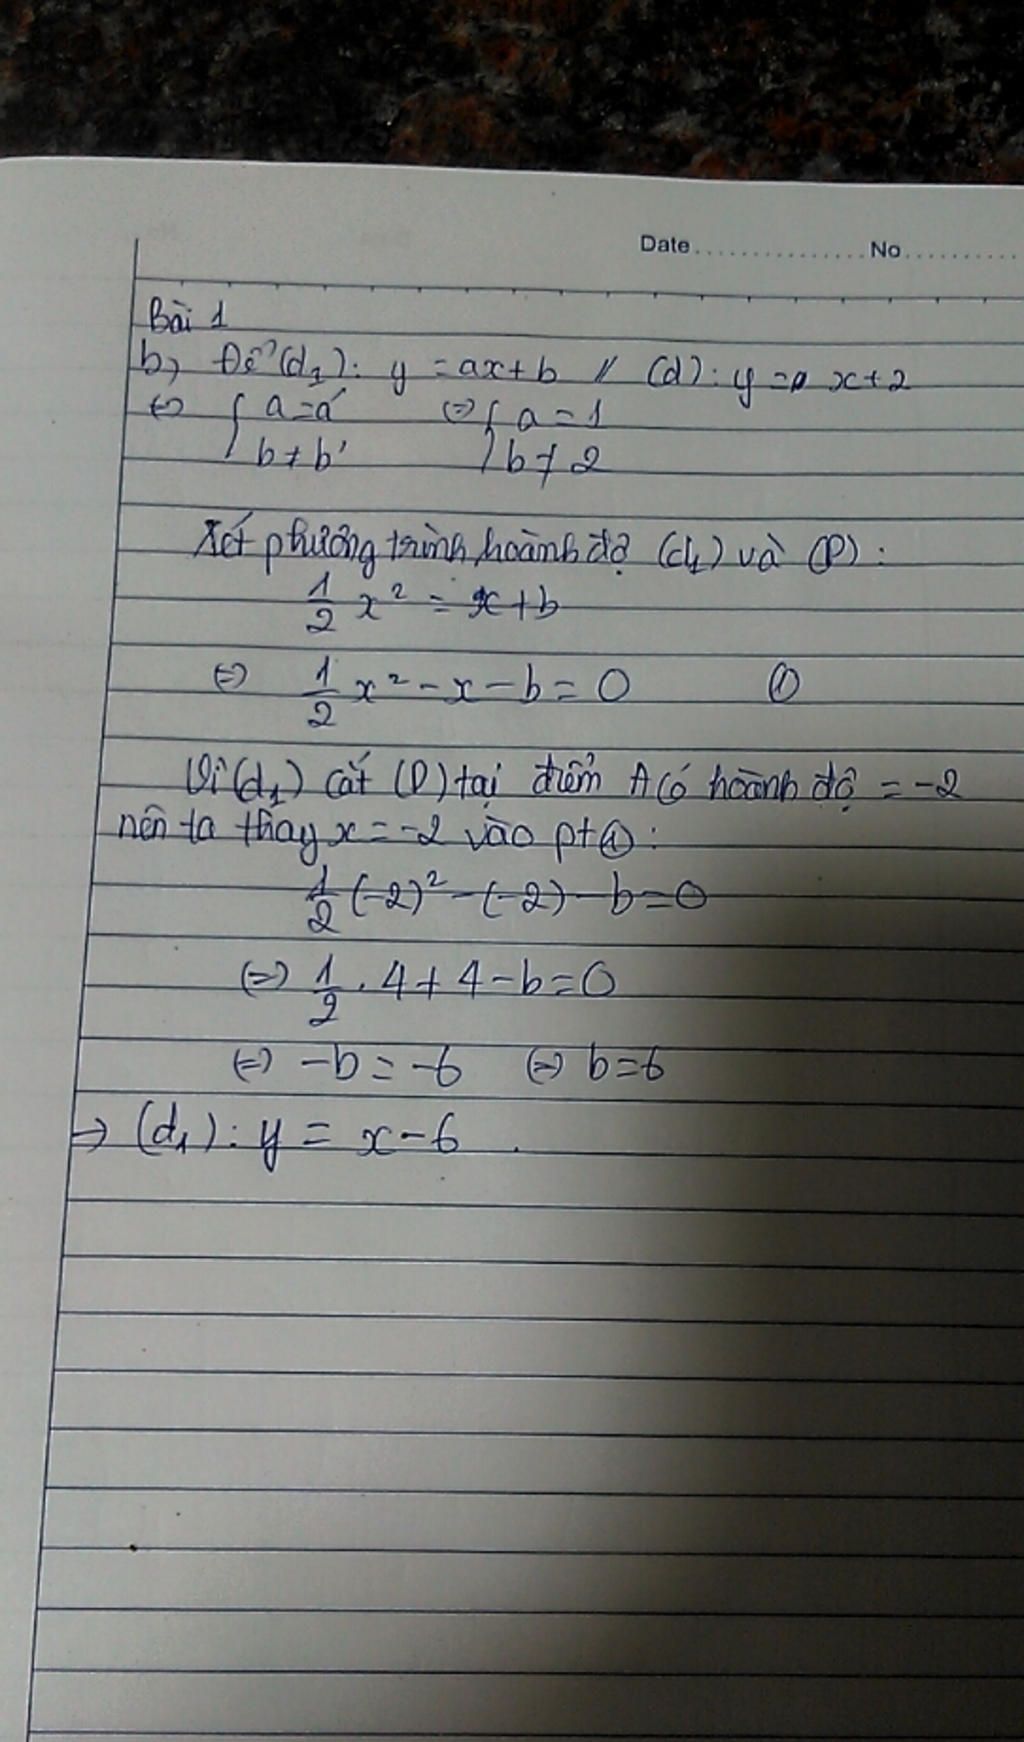 Date................No..........
Bài 1
b, Để (d₁): y = ax+b // (d): y = x+2
⇔ { a=a' ⇔ { a = 1
b≠b' b ≠ 2
Xét phương trình hoành độ (d₁) và (P) :
1/2 x² = x+b
⇔ 1/2 x² - x - b = 0 ①
Vì (d₁) cắt (P) tại điểm A có hoành độ = -2
nên ta thay x = -2 vào pt ① :
1/2 (-2)² - (-2) - b = 0
⇔ 1/2 . 4 + 4 - b = 0
⇔ -b = -6 ⇔ b=6
→ (d₁) : y = x - 6 .